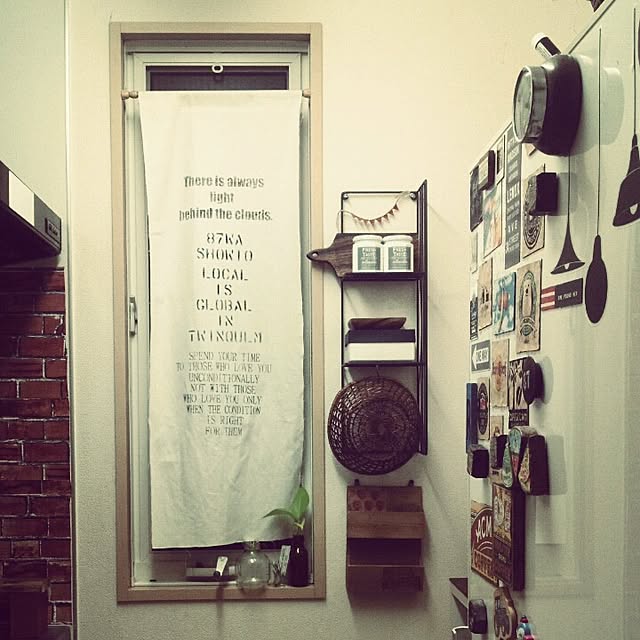 There is always
light
behind the clouds.
87WA
SHOWTO
LOCAL
IS
GLOBAL
IN
TWINQULM
SPEND YOUR TIME
TO THOSE WHO LOVE YOU
UNCONDITIONALLY
NOT WITH THOSE
WHO LOVE YOU ONLY
WHEN THE CONDITION
IS RIGHT
FOR THEM